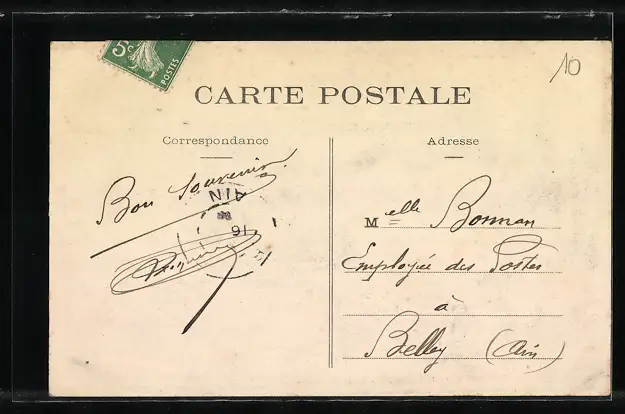 5c
POSTES
10
CARTE POSTALE
Correspondance
Bon souvenir.
AIN
16
Adresse
Melle Bonnan
Employée des Postes
à
Belley (Ain)